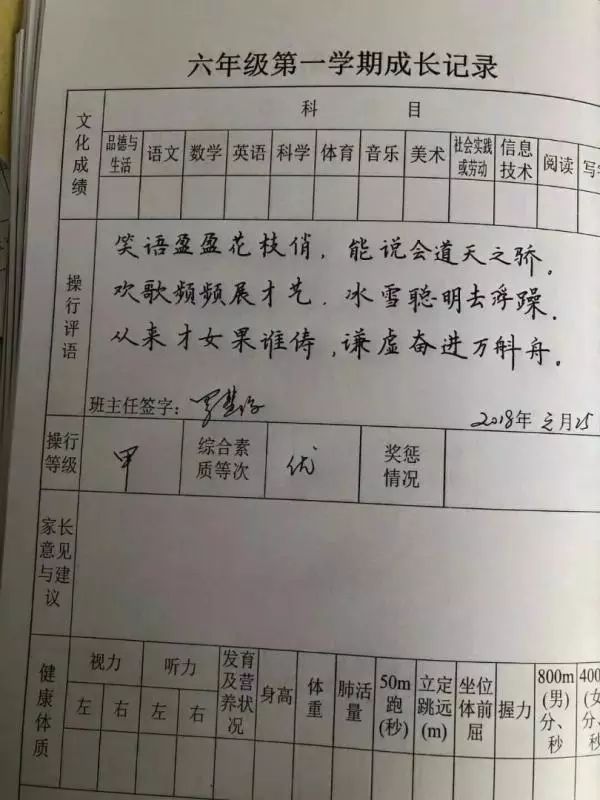 六年级第一学期成长记录
文化成绩
科 目
品德与生活 语文 数学 英语 科学 体育 音乐 美术 社会实践或劳动 信息技术 阅读
操行评语
笑语盈盈花枝俏，能说会道天之骄。
欢歌频频展才艺，冰雪聪明去浮躁。
从来才女果谁俦，谦虚奋进万斛舟。
班主任签字：
2018年 元月25
操行等级 甲 综合素质等次 优 奖惩情况
家长意见与建议
健康体质
视力 听力 发育及营养状况 身高 体重 肺活量 50m跑(秒) 立定跳远(m) 坐位体前屈 握力 800m(男)分、秒
左 右 左 右